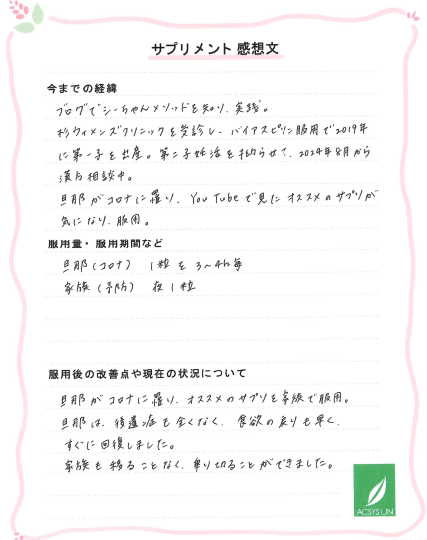 サプリメント 感想文
今までの経緯
ブログでシーちゃんメソッドを知り、実践。
杉ウィメンズクリニックを受診し、バイアスピリン服用で2019年
に第一子を出産。第二子妊活を始めて、2024年8月から
漢方相談中。
旦那がコロナに罹り、YouTubeで見たオススメのサプリが
気になり、服用。
服用量・服用期間など
旦那(コロナ) 1粒を3〜4h毎
家族(予防) 夜1粒
服用後の改善点や現在の状況について
旦那がコロナに罹り、オススメのサプリを家族で服用。
旦那は、後遺症も全くなく、食欲の戻りも早く、
すぐに回復しました。
家族も移ることなく、乗り切ることができました。
ACSYS UN